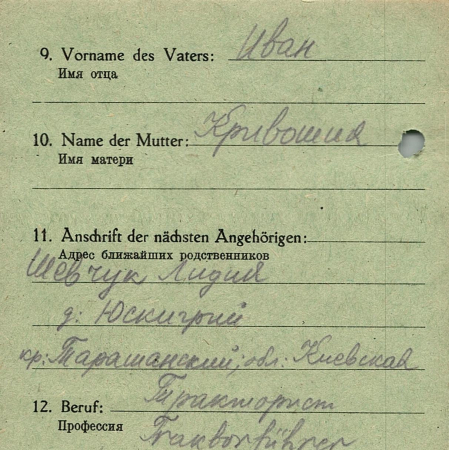 9. Vorname des Vaters: Иван
Имя отца
10. Name der Mutter: Кривошия
Имя матери
11. Anschrift der nächsten Angehörigen:
Адрес ближайших родственников
Шевчук Лидия
д: Юскигрий
кр: Таращанский, обл: Киевская
12. Beruf: Тракторист
Профессия Tracktorführer